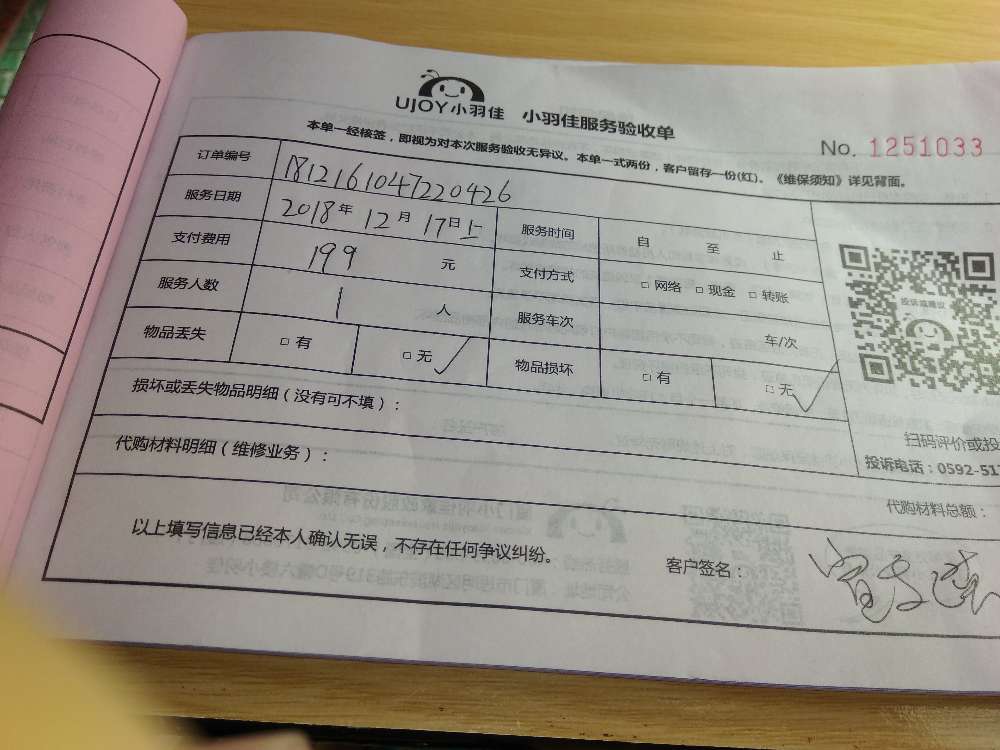 UJOY小羽佳 小羽佳服务验收单
No. 1251033
本单一经核签，即视为对本次服务验收无异议。本单一式两份，客户留存一份(红)。《维保须知》详见背面。
订单编号 1812161047220426
服务日期 2018年12月17日上 服务时间 自 至 止
支付费用 199 元 支付方式 □ 网络 □ 现金 □ 转账
服务人数 1 人 服务车次 车/次
物品丢失 □ 有 □ 无 ✓ 物品损坏 □ 有 □ 无 ✓
投诉或建议
扫码评价或投
损坏或丢失物品明细（没有可不填）：
投诉电话：0592-51
代购材料明细（维修业务）：
代购材料总额：
以上填写信息已经本人确认无误，不存在任何争议纠纷。 客户签名：